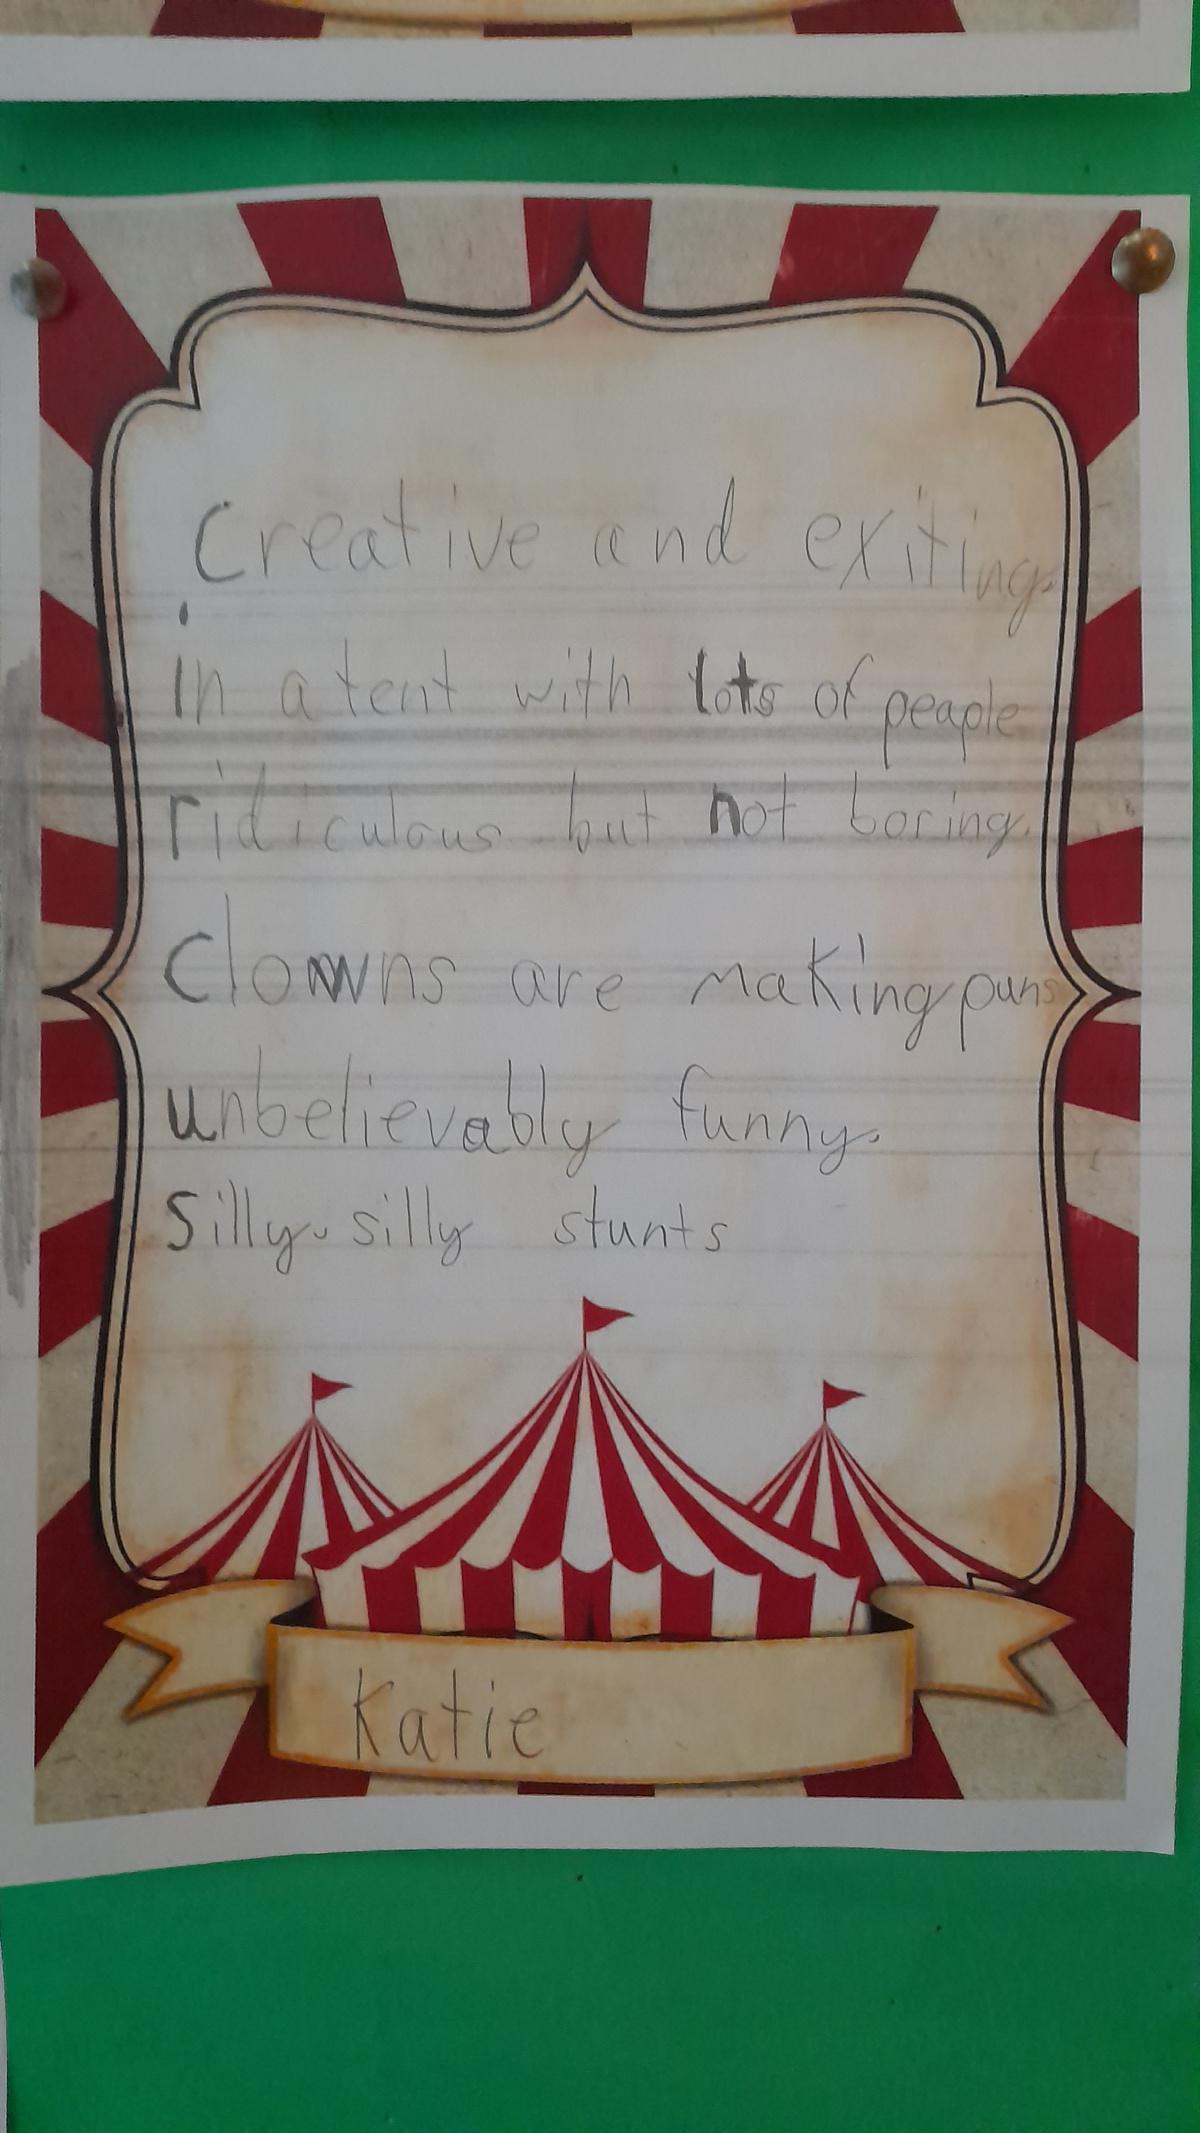 Creative and exiting.
in a tent with lots of peaple
ridiculous but not boring.
Clowns are making puns
unbelievably funny.
Silly. silly stunts
Katie